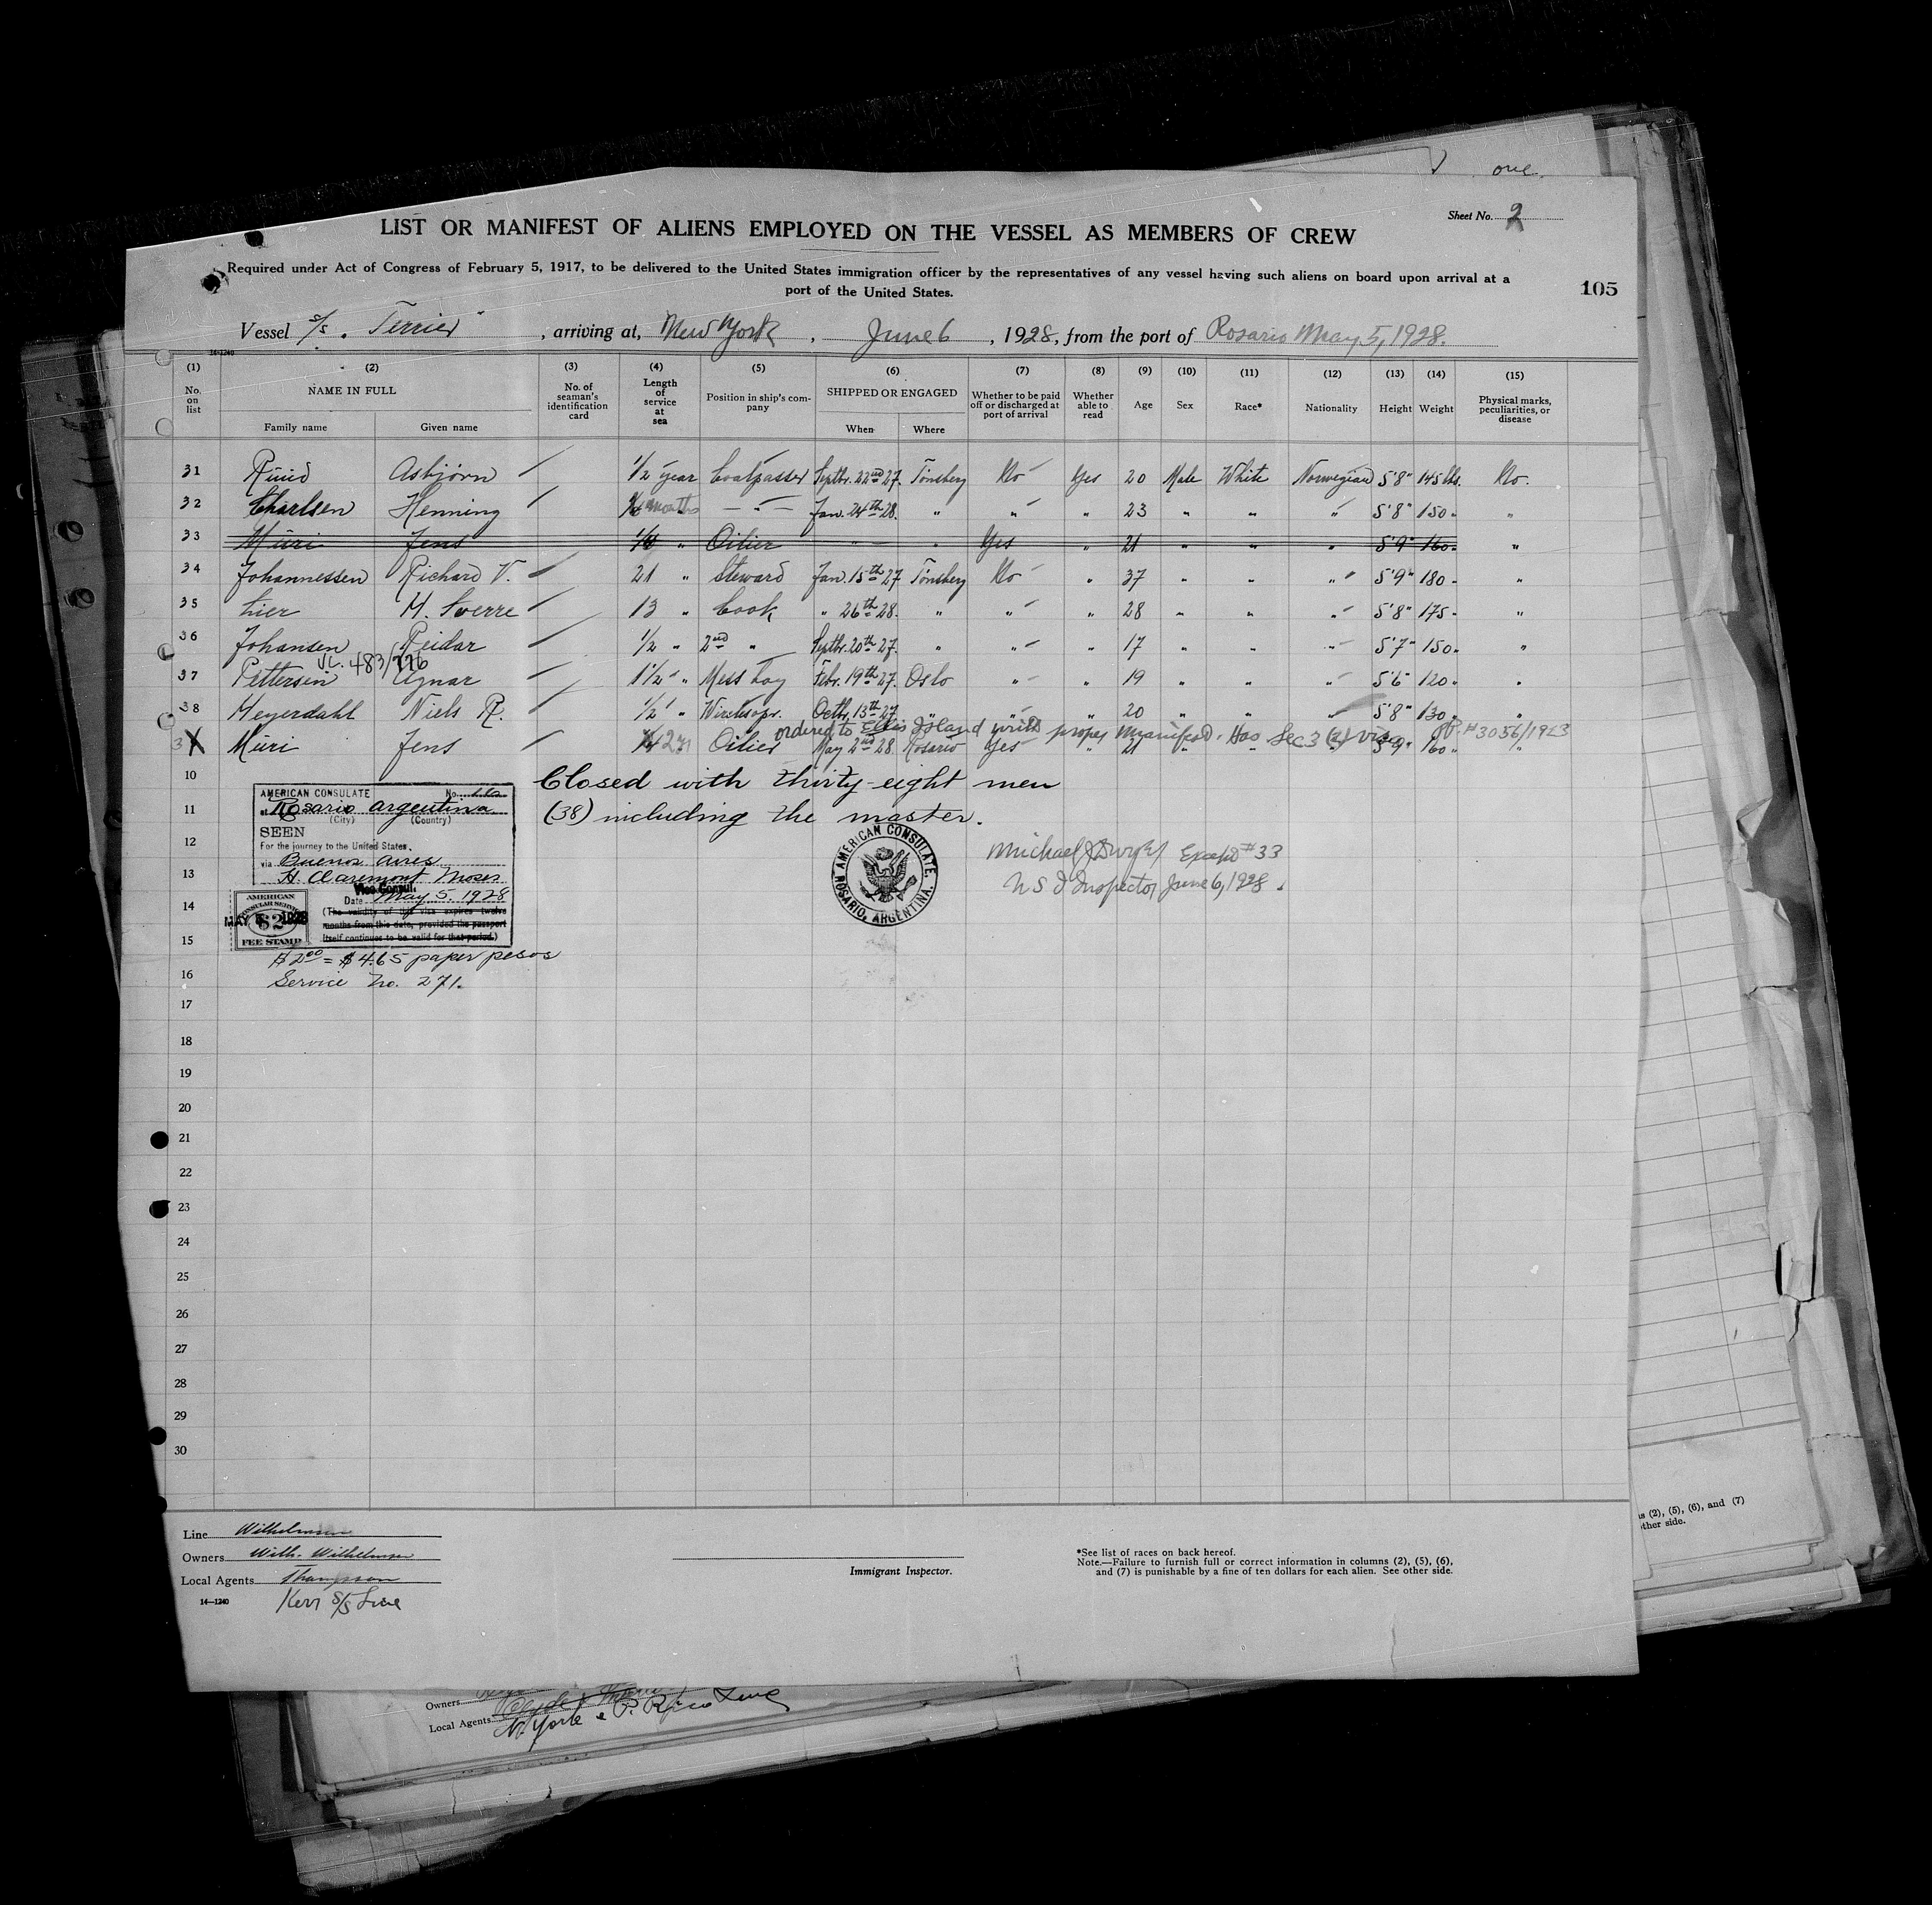 one
Sheet No. 2
LIST OR MANIFEST OF ALIENS EMPLOYED ON THE VESSEL AS MEMBERS OF CREW
Required under Act of Congress of February 5, 1917, to be delivered to the United States immigration officer by the representatives of any vessel having such aliens on board upon arrival at a
port of the United States.
105
Vessel S/S „Terrier" , arriving at, New York , June 6 , 1928, from the port of Rosario May 5, 1928.
14-1240
(1) (2) (3) (4) (5) (6) (7) (8) (9) (10) (11) (12) (13) (14) (15)
No. on list NAME IN FULL No. of seaman's identification card Length of service at sea Position in ship's company SHIPPED OR ENGAGED Whether to be paid off or discharged at port of arrival Whether able to read Age Sex Race* Nationality Height Weight Physical marks, peculiarities, or disease
Family name Given name When Where
31 Ruud Asbjörn 1/2 year Coalpasser Septbr. 22nd 27. Tönsberg No Yes 20 Male White Norwegian 5'8" 145 lbs. No.
32 Charlsen Henning months — " — Jan. 24th 28. " " " 23 " " " 5'8" 150 " "
33 Muri Jens 1/4 " Oilier " " Yes " 21 " " " 5'9" 160 " "
34 Johannessen Richard V. 21 " Steward Jan. 15th 27 Tönsberg No " 37 " " " 5'9" 180 " "
35 Lier M. Sverre 13 " Cook " 26th 28. " " " 28 " " " 5'8" 175 " "
36 Johansen Reidar 1/2 " 2nd " Septbr. 20th 27. " " " 17 " " " 5'7" 150 " "
483/776
37 Pettersen Agnar 1 1/2 " Mess boy Febr. 19th 27. Oslo " " 19 " " " 5'6" 120 " "
38 Heyerdahl Niels R. 1/2 " Octbr. 13th 27. " " " 20 " " " 5'8" 130 " "
ordered to Ellis Island with proper manifest. Has Sec 3 (2) visa #3056/1923
3X Muri Jens Oilier May 2nd 28. Rosario Yes " 21 " " " 5'9" 160 " "
10 Closed with thirty-eight men
11 (38) including the master.
AMERICAN CONSULATE No.
at Rosario Argentina
(City) (Country)
SEEN
For the journey to the United States,
via Buenos Aires
H. Claremont Moses
Vice Consul.
Date May 5. 1928
(The validity of this visa expires twelve
months from this date, provided the passport
itself continues to be valid for that period.)
AMERICAN
CONSULAR SERVICE
$2
MAY 5 1928
FEE STAMP
AMERICAN CONSULATE,
ROSARIO, ARGENTINA.
Michael J Dwyer Except #33
U S I Inspector June 6, 1928.
12
13
14
15
$2.00 = $4.65 paper pesos
16
Service No. 271.
17
18
19
20
21
22
23
24
25
26
27
28
29
30
Line Wilhelmsen
Owners Wilh. Wilhelmsen
Local Agents Thompson
14-1240 Kerr S/S Line
Immigrant Inspector.
*See list of races on back hereof.
Note.—Failure to furnish full or correct information in columns (2), (5), (6),
and (7) is punishable by a fine of ten dollars for each alien. See other side.
(2), (5), (6), and (7)
other side.
Owners
Local Agents N. York & P. Rico Line